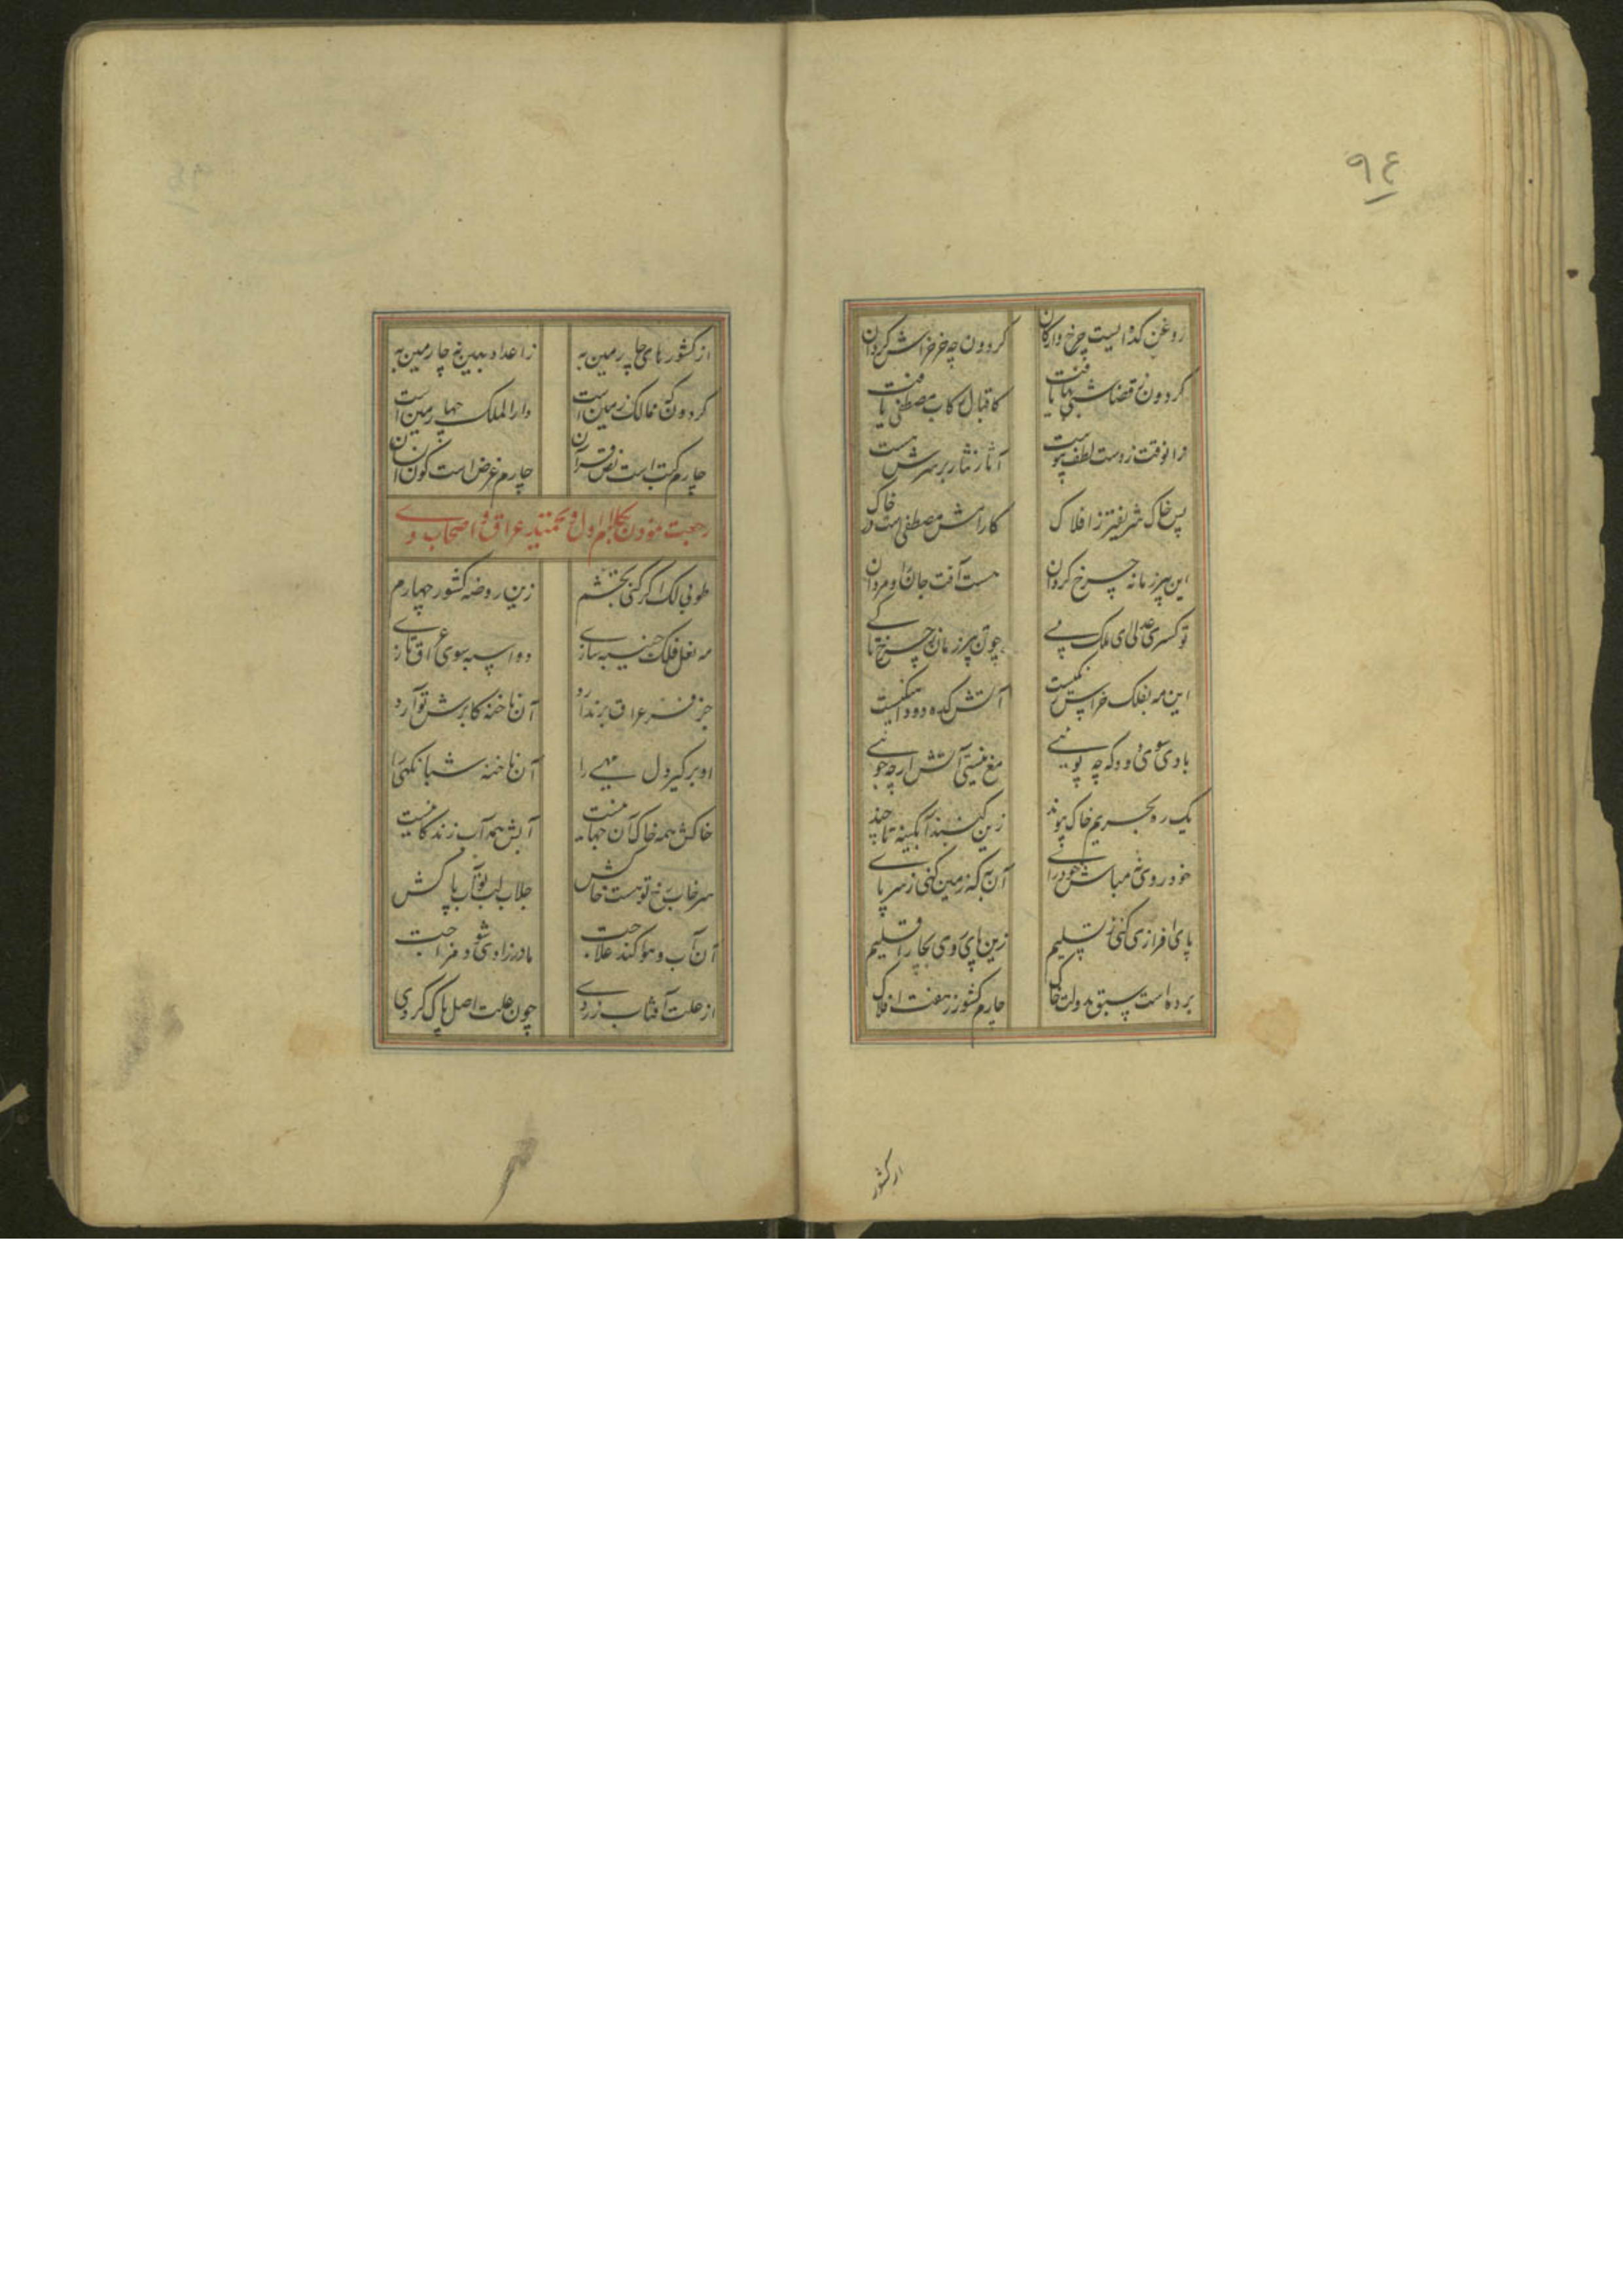 ۹۴
روغن کده ایست چرخ دارکان گردون چه خر خراش گردان
گردون ز قضا شبیها یافت کاقبال رکاب مصطفی یافت
زانوقت ز دست لطف پیوست آثار نثار بر سرش هست
پس خاک شریفتر ز افلاک کارامش مصطفی است در خاک
این پیر زمانه چرخ گردان هست آفت جان او مردان
تو کسری عدلی ای ملک پی چون پیر زمان چرخ تا کی
این مه بفلک خراس آتش کده دود
بادی سوی دود که چه پوئی مغ نیستی آتش ارچه جوئی
یک ره بحریم خاک پیوند زین گنبد آبگینه تا چند
خود روی مباش خودرای آن به که زمین کنی ز سر پای
پای افرازی کنی ز تسلیم زین پای روی بچار اقلیم
برده است سبق بدولت خاک چارم کشور ز هفت افلاک
از کشور
از کشورهای چارمین به ز اعداد ببین چارمین به
گردون که ممالک زمین است دارالملک چهارمین است
چارم کتب است نص قرآن چارم غرض است کون انسان
رجعت نمودن بکلام اول و تحمتیار عراق و اصحاب وی
طوبی لک اگر کنی تجشم زین روضه کشور چهارم
مه نعل فلک جنیبه سازی ده اسبه سوی عراق تازی
جز فر عراق برندارد آن ناخنه کابرش تو آرد
او برگیرد ل مهی را آن ناخنه شبانگهی را
خاکش همه خاک آن جهانیست آبش همه آب زندگانیست
سرخاب رخ تو هست خاکش جلاب لب تو آب پاکش
آن آب و هوا کند علاجت مادرزادی شود مزاجت
از علت آفتاب زردی چون علت اصل پاک گردی